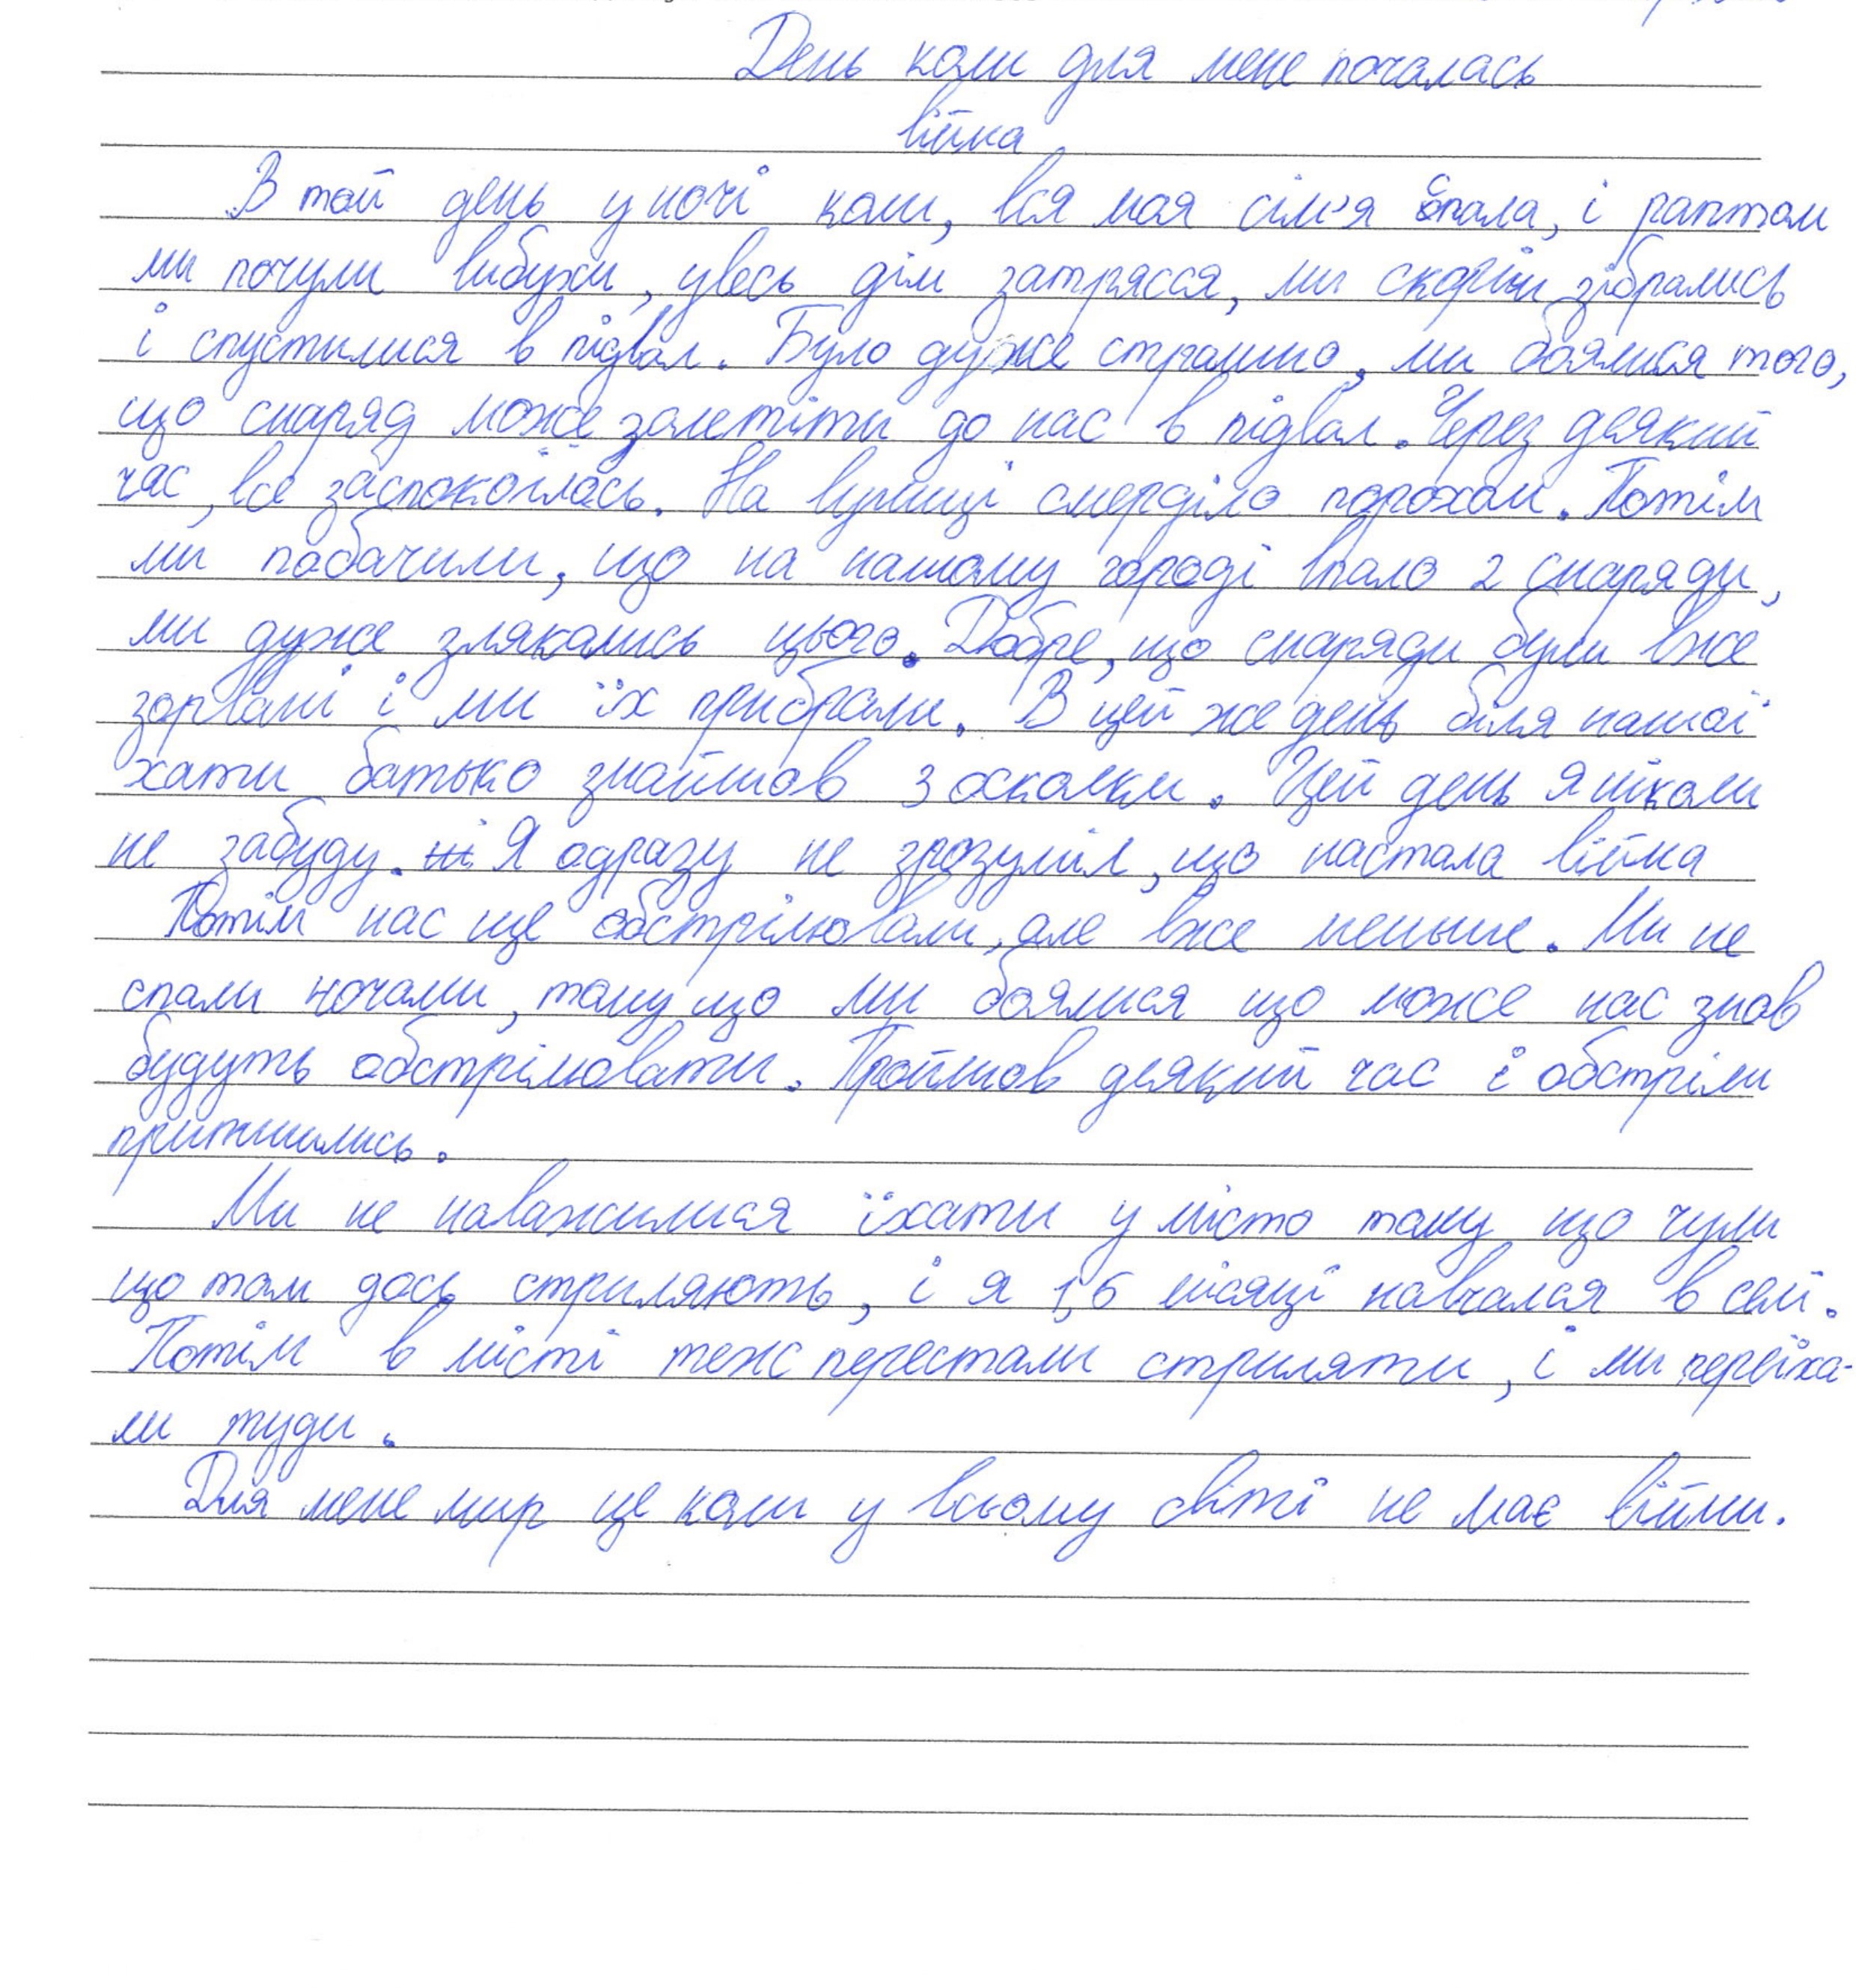 День коли для мене почалась
війна
В той день уночі коли, вся моя сім'я спала, і раптом
ми почули вибухи, увесь дім затрясся, ми скоріш зібрались
і спустилися в підвал. Було дуже страшно, ми боялися того,
що снаряд може залетіти до нас в підвал. Через деякий
час, все заспокоїлось. На вулиці смерділо порохом. Потім
ми побачили, що на нашому городі впало 2 снаряди,
ми дуже злякались цього. Добре, що снаряди були вже
зорвані і ми їх прибрали. В цей же день біля нашої
хати батько знайшов 3 осколки. Цей день я ніколи
не забуду. Я одразу не зрозумів, що настала війна
Потім нас ще обстрілювали, але вже меньше. Ми не
спали ночами, тому що ми боялися що може нас знов
будуть обстрілювати. Пройшов деякий час і обстріли
притишились.
Ми не наважилися їхати у місто тому що чули
що там дось стриляють, і я 1,5 місяці навчался в селі.
Потім в місті теж перестали стриляти, і ми переїха-
ли туди.
Для мене мир це коли у всьому світі не має війни.